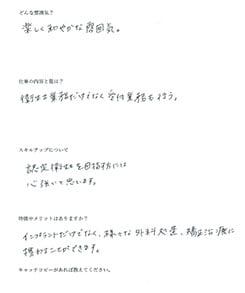 どんな雰囲気？
楽しく和やかな雰囲気。
仕事の内容と量は？
衛生士業務だけでなく受付業務も行う。
スキルアップについて
認定衛生士を目指す方には
心強いと思います。
特徴やメリットはありますか？
インプラントだけでなく、様々な外科処置、矯正治療に
携わることができます。
キャッチコピーがあれば教えてください。